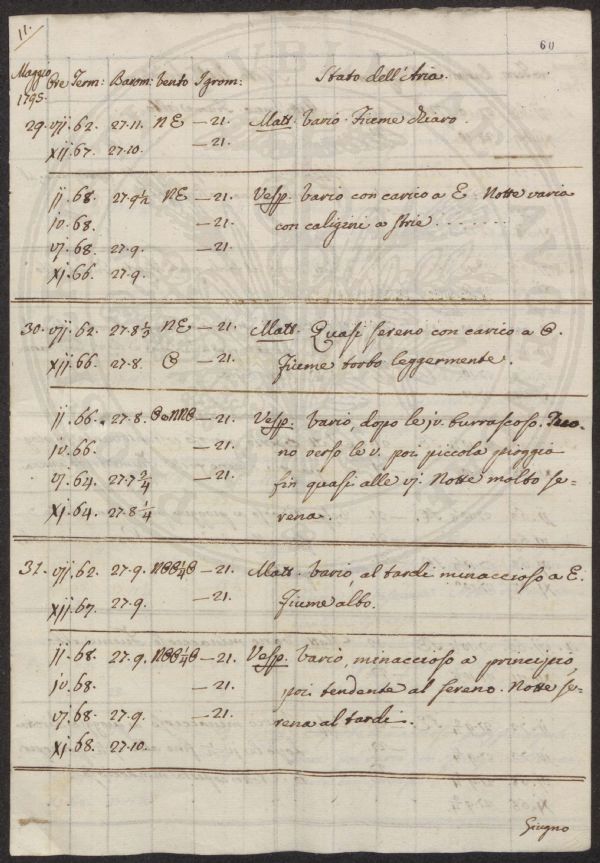 11.
60
Maggio 1795. Ore Term: Barom: Vento Igrom: Stato dell'Aria.
29. vij. 62. 27.11. NE — 21. Matt. Vario. Fiume chiaro.
xij. 67. 27.10. — 21.
ij. 68. 27.9½ NE — 21. Vesp. Vario con carico a E. Notte varia
iv. 68. — 21. con caligini a strie . . . . . . .
vj. 68. 27.9. — 21.
xj. 66. 27.9.
30. vij. 62. 27.8⅓ NE — 21. Matt. Quasi sereno con carico a O.
xij. 66. 27.8. O — 21. Fiume torbo leggermente.
ij. 66. 27.8. — 21. Vesp. Vario, dopo le iv. burrascoso. Tuo-
iv. 66. — 21. no verso le v. poi piccola pioggia
vj. 64. 27.7¾ — 21. fin quasi alle vj. Notte molto se-
xj. 64. 27.8¼ rena.
31. vij. 62. 27.9. — 21. Matt. Vario, al tardi minaccioso a E.
xij. 67. 27.9. — 21. Fiume albo.
ij. 68. 27.9. — 21. Vesp. Vario, minaccioso a principio,
iv. 68. — 21. poi tendente al sereno. Notte se-
vj. 68. 27.9. — 21. rena al tardi.
xj. 68. 27.10.
Giugno